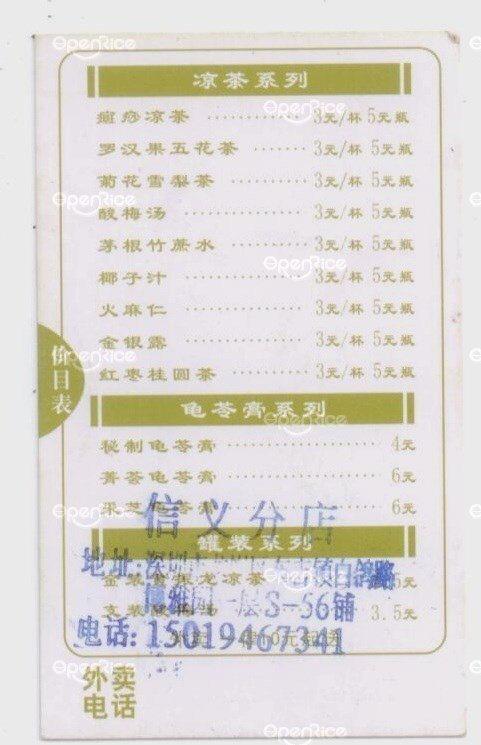 价目表
凉茶系列
癍痧凉茶 3元/杯 5元瓶
罗汉果五花茶 3元/杯 5元瓶
菊花雪梨茶 3元/杯 5元瓶
酸梅汤 3元/杯 5元瓶
茅根竹蔗水 3元/杯 5元瓶
椰子汁 3元/杯 5元瓶
火麻仁 3元/杯 5元瓶
金银露 3元/杯 5元瓶
红枣桂圆茶 3元/杯 5元瓶
龟苓膏系列
秘制龟苓膏 4元
龟苓膏 6元
龟苓膏 6元
信义分店
罐装系列
龙凉茶 5元
地址:深圳 镇白鸽路
一层S-56铺
支装 3.5元
电话:15019467341
10元
外卖
电话
OpenRice